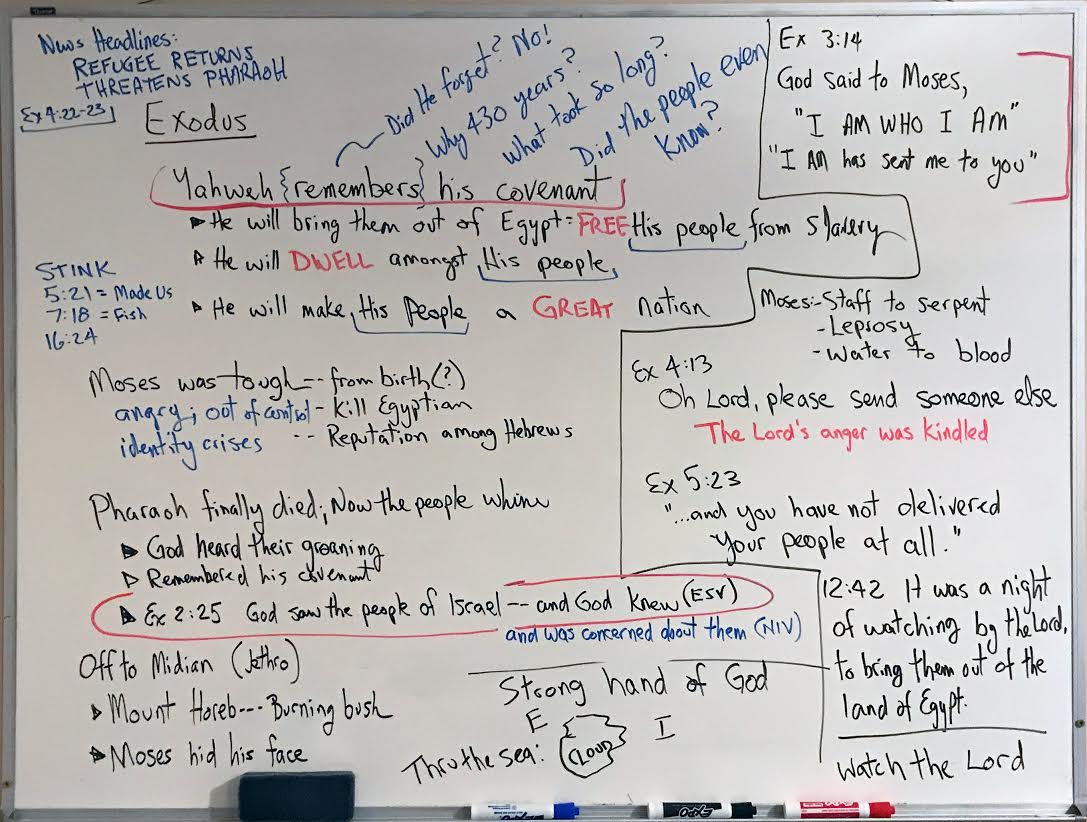 News Headlines:
REFUGEE RETURNS
THREATENS PHARAOH
Ex 4:22-23
Exodus
Did He forget? No!
Why 430 years?
What took so long?
Did the people even
know?
Yahweh {remembers} his covenant
He will bring them out of Egypt = FREE His people from slavery
He will DWELL amongst His people,
He will make His People a GREAT nation
STINK
5:21 = Made Us
7:18 = Fish
16:24
Moses was tough -- from birth (?)
angry; out of control - kill Egyptian
identity crises -- Reputation among Hebrews
Pharaoh finally died; Now the people whine
God heard their groaning
Remembered his covenant
Ex 2:25 God saw the people of Israel -- and God knew (ESV)
and was concerned about them (NIV)
Off to Midian (Jethro)
Mount Horeb --- Burning bush
Moses hid his face
Ex 3:14
God said to Moses,
"I AM WHO I AM"
"I AM has sent me to you"
Moses:- Staff to serpent
- Leprosy
- Water to blood
Ex 4:13
Oh Lord, please send someone else
The Lord's anger was kindled
Ex 5:23
"...and you have not delivered
your people at all."
12:42 It was a night
of watching by the Lord,
to bring them out of the
land of Egypt.
Watch the Lord
Strong hand of God
E I
Thru the sea: CLOUD
EXPO
EXPO